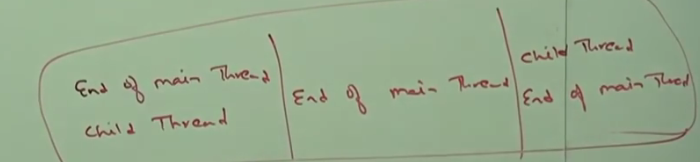 End of main Thread
Child Thread
End of main Thread
Child Thread
End of main Thread